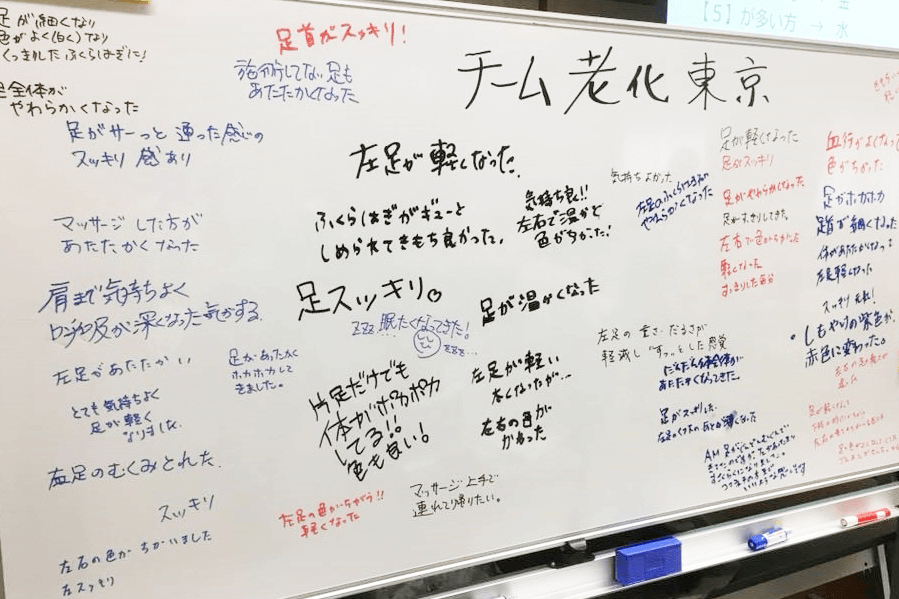 【5】が多い方 → 水
チーム 老化 東京
足が細くなり
色がよく(白く)なり
くっきりしたふくらはぎに!
足全体が
やわらかくなった
足首がスッキリ!
施術してない足も
あたたかくなった
足がサーっと通った感じの
スッキリ感あり
左足が軽くなった。
マッサージした方が
あたたかくなった
ふくらはぎがギューと
しめられてきもち良かった。
気持ち良!!
左右で温かと
色がちがった!
気持ちよかった
左足のふくらはぎが
やわらかくなった
足が軽くなった
足がスッキリ
足がやわらかくなった
足がすっきりしてきた。
左右で色がちがった
軽くなった
すっきりした気分
血行がよくなって
色がちがった
足がホカホカ
足首が細くなった
体があたたかくなって
左足軽くなった
肩まで気持ちよく
呼吸が深くなった気がする。
足スッキリ。
ZZZ 眠たくなってきた!
足が温かくなった
左足があたたかい
足があったかく
ホカホカして
きました。
とても気持ちよく
足が軽く
なりました
片足だけでも
体がポカポカ
してる!!
色も良い!
左足が軽い
左右の色が
かわった
左足の重さ・だるさが
軽減し"すっ"とした感覚
だんだん体全体が
あたたかくなってきた。
しもやけの紫色が、
赤色に変わった。
左足のむくみとれた。
足がスッキリした
スッキリ
左右の色がちがいました
左スッキリ
左足の色がちがう!!
軽くなった
マッサージ上手で
連れて帰りたい。